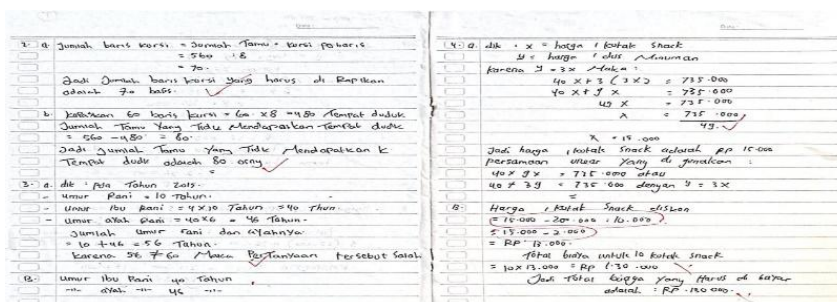 2. a. Jumlah baris kursi = Jumlah Tamu : kursi perbaris
= 560 : 8
= 70.
Jadi Jumlah baris kursi yang harus di Rapikan
adalah 70 baris.
b. 60 baris kursi = 60 x 8 = 480 Tempat duduk
Jumlah Tamu Yang Tidk Mendapatkan Tempat dudk
= 560 - 480 = 80.
Jadi Jumlah Tamu Yang Tidk Mendapatkan
Tempat dudk adalah 80 orang
3. a. dik : Pda Tahun 2015.
- umur Rani = 10 Tahun.
- umur Ibu Rani = 4x10 Tahun = 40 Thun.
- umur ayah Rani = 40+6 = 46 Tahun.
Jumlah umur rani dan ayahnya
= 10 + 46 = 56 Tahun.
karena 56 ≠ 60 Maka Pertanyaan tersebut Salah
B. umur Ibu Rani 40 Tahun
-"- ayah -"- 46 -"-
4. a. dik : x = harga 1 kotak Snack
y = harga 1 dus Minuman
karena y = 3x Maka :
40 x + 3 (3x) = 735.000
40 x + 9 x = 735.000
49 x = 735.000
x = 735.000
49
x = 15.000
Jadi harga 1 kotak Snack adalah RP 15.000
persamaan linear yang di gunakan :
40x 9x = 735.000 atau
40 + 3y = 735.000 dengan y = 3x
B. Harga 1 kotak Snack diskon
= 15.000 - 20 .000 : 10.000
= 15.000 - 2.000
= RP. 13.000.
Total biaya untuk 10 kotak Snack
= 10x 13.000 = RP 130.000
Jadi Total biaya yang Harus di bayar
adalah : RP. 130.000.